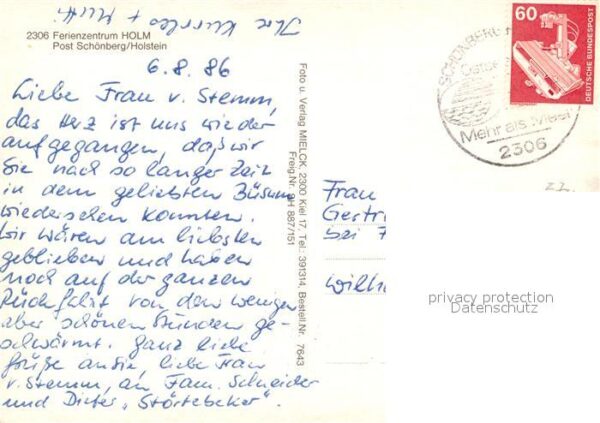 2306 Ferienzentrum HOLM
Post Schönberg/Holstein
6.8.86
Liebe Frau v. Stemm,
das Herz ist uns wieder
aufgegangen, daß wir
Sie nach so langer Zeit
in dem geliebten Büsum
wiedersehen konnten.
Wir wären am liebsten
geblieben und haben
noch auf der ganzen
Rückfahrt von den wenigen
aber schönen Stunden ge-
schwärmt. Ganz liebe
Grüße an Sie, liebe Frau
v. Stemm, an Fam. Schneider
und Dieter „Störtebeker".
Ihre + Mutti
Foto u. Verlag MIELCK, 2300 Kiel 17, Tel.: 391314, Bestell.Nr. 7643
Freig.Nr. SH 887/151
60
DEUTSCHE BUNDESPOST
SCHÖNBERG
Ostsee
Mehr als Meer
2306
Frau
Gertr
bei
Wilh
privacy protection
Datenschutz